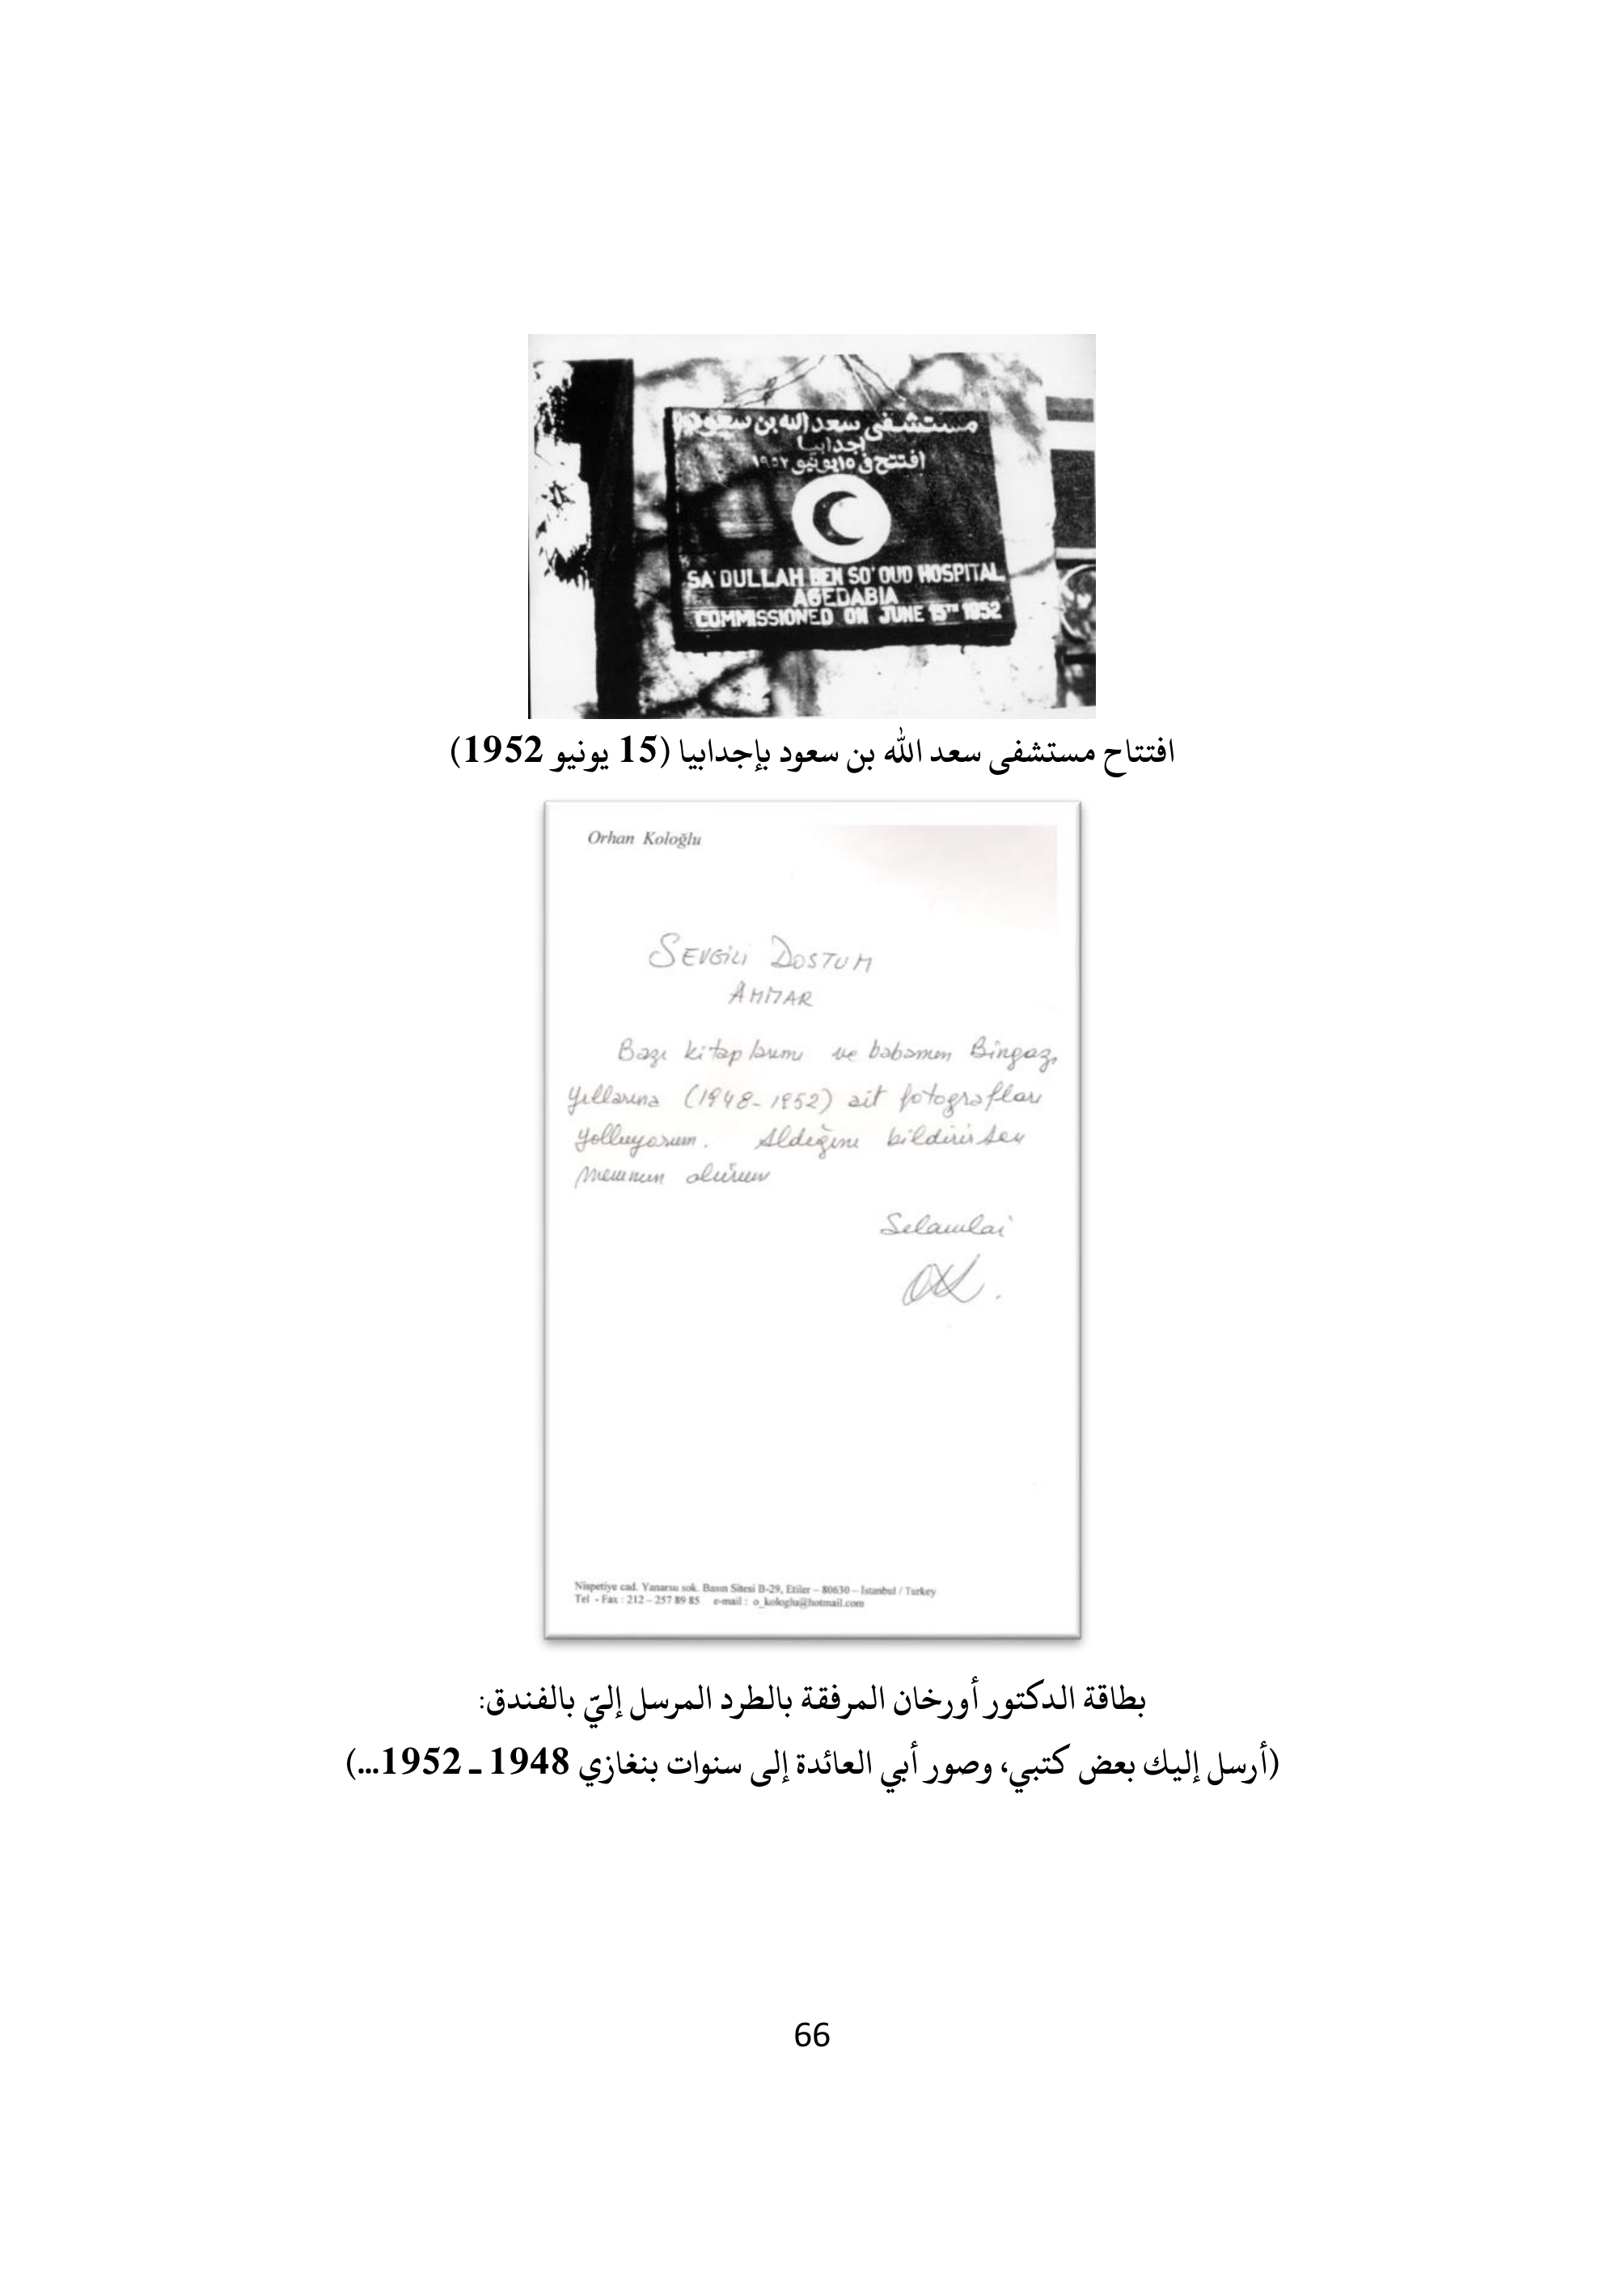 مستشفى سعد الله بن سعود
اجدابيا
افتتح في ١٥ يونيو ١٩٥٢
SA'DULLAH BEN SO'OUD HOSPITAL
AGEDABIA
COMMISSIONED ON JUNE 15TH 1952
افتتاح مستشفى سعد الله بن سعود بإجدابيا (15 يونيو 1952)
Orhan Koloğlu
SEVGİLİ DOSTUM
AMMAR
Bazı kitaplarımı ve babamın Bingazi
yıllarına (1948-1952) ait fotografları
yolluyorum. Aldığını bildirirsen
memnun olurum
Selamlar
OK.
Nispetiye cad. Yanarsu sok. Basın Sitesi B-29, Etiler – 80630 – İstanbul / Turkey
Tel - Fax : 212 – 257 89 85 e-mail : o_kologlu@hotmail.com
بطاقة الدكتور أورخان المرفقة بالطرد المرسل إليّ بالفندق:
(أرسل إليك بعض كتبي، وصور أبي العائدة إلى سنوات بنغازي 1948 ـ 1952...)
66